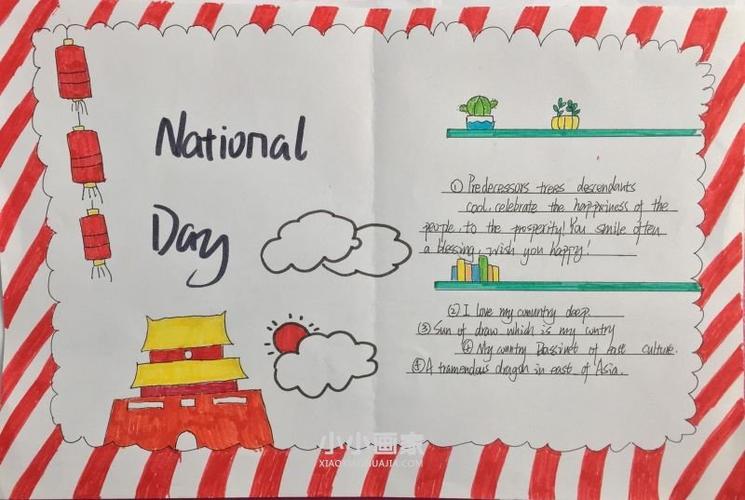 National
Day
① Predecessors trees descendants
cool, celebrate the happxiness of the
people, to the prosperity! You smile often
a blessing, wish you happy!
② I love my comuntry deep
③ Sun of draw which is my cuntry
④ My cuntry Bassinet of east culture.
⑤ A tramendous dragon in east of Asia.
小小画家
XIAOXIAOHUAJIA.COM